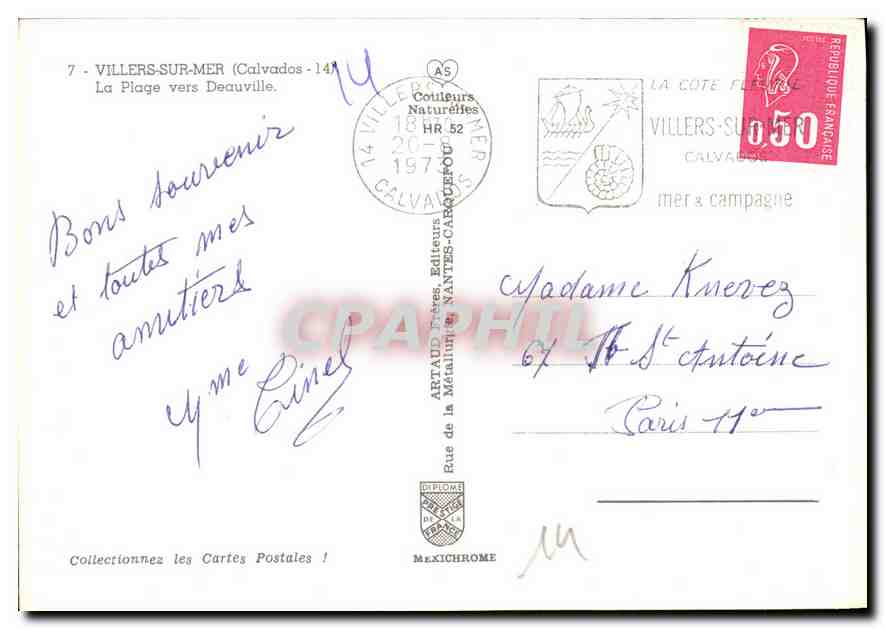 7 - VILLERS-SUR-MER (Calvados - 14)
La Plage vers Deauville.
14
Bons souvenir
et toutes mes
amitiés
Mme Tinel
Collectionnez les Cartes Postales !
AS
Couleurs
Naturelles
HR 52
ARTAUD Frères, Editeurs
Rue de la Métallurgie, NANTES-CARQUEFOU
DIPLOME
PRESTIGE
DE LA
FRANCE
MEXICHROME
14 VILLERS-SUR-MER
18H
20-
197
CALVADOS
LA COTE FLEURIE
VILLERS-SUR-MER
CALVADOS
mer & campagne
REPUBLIQUE-FRANÇAISE
0,50
Madame Knevez
67 St Antoine
Paris 11er
14
CPAPHIL